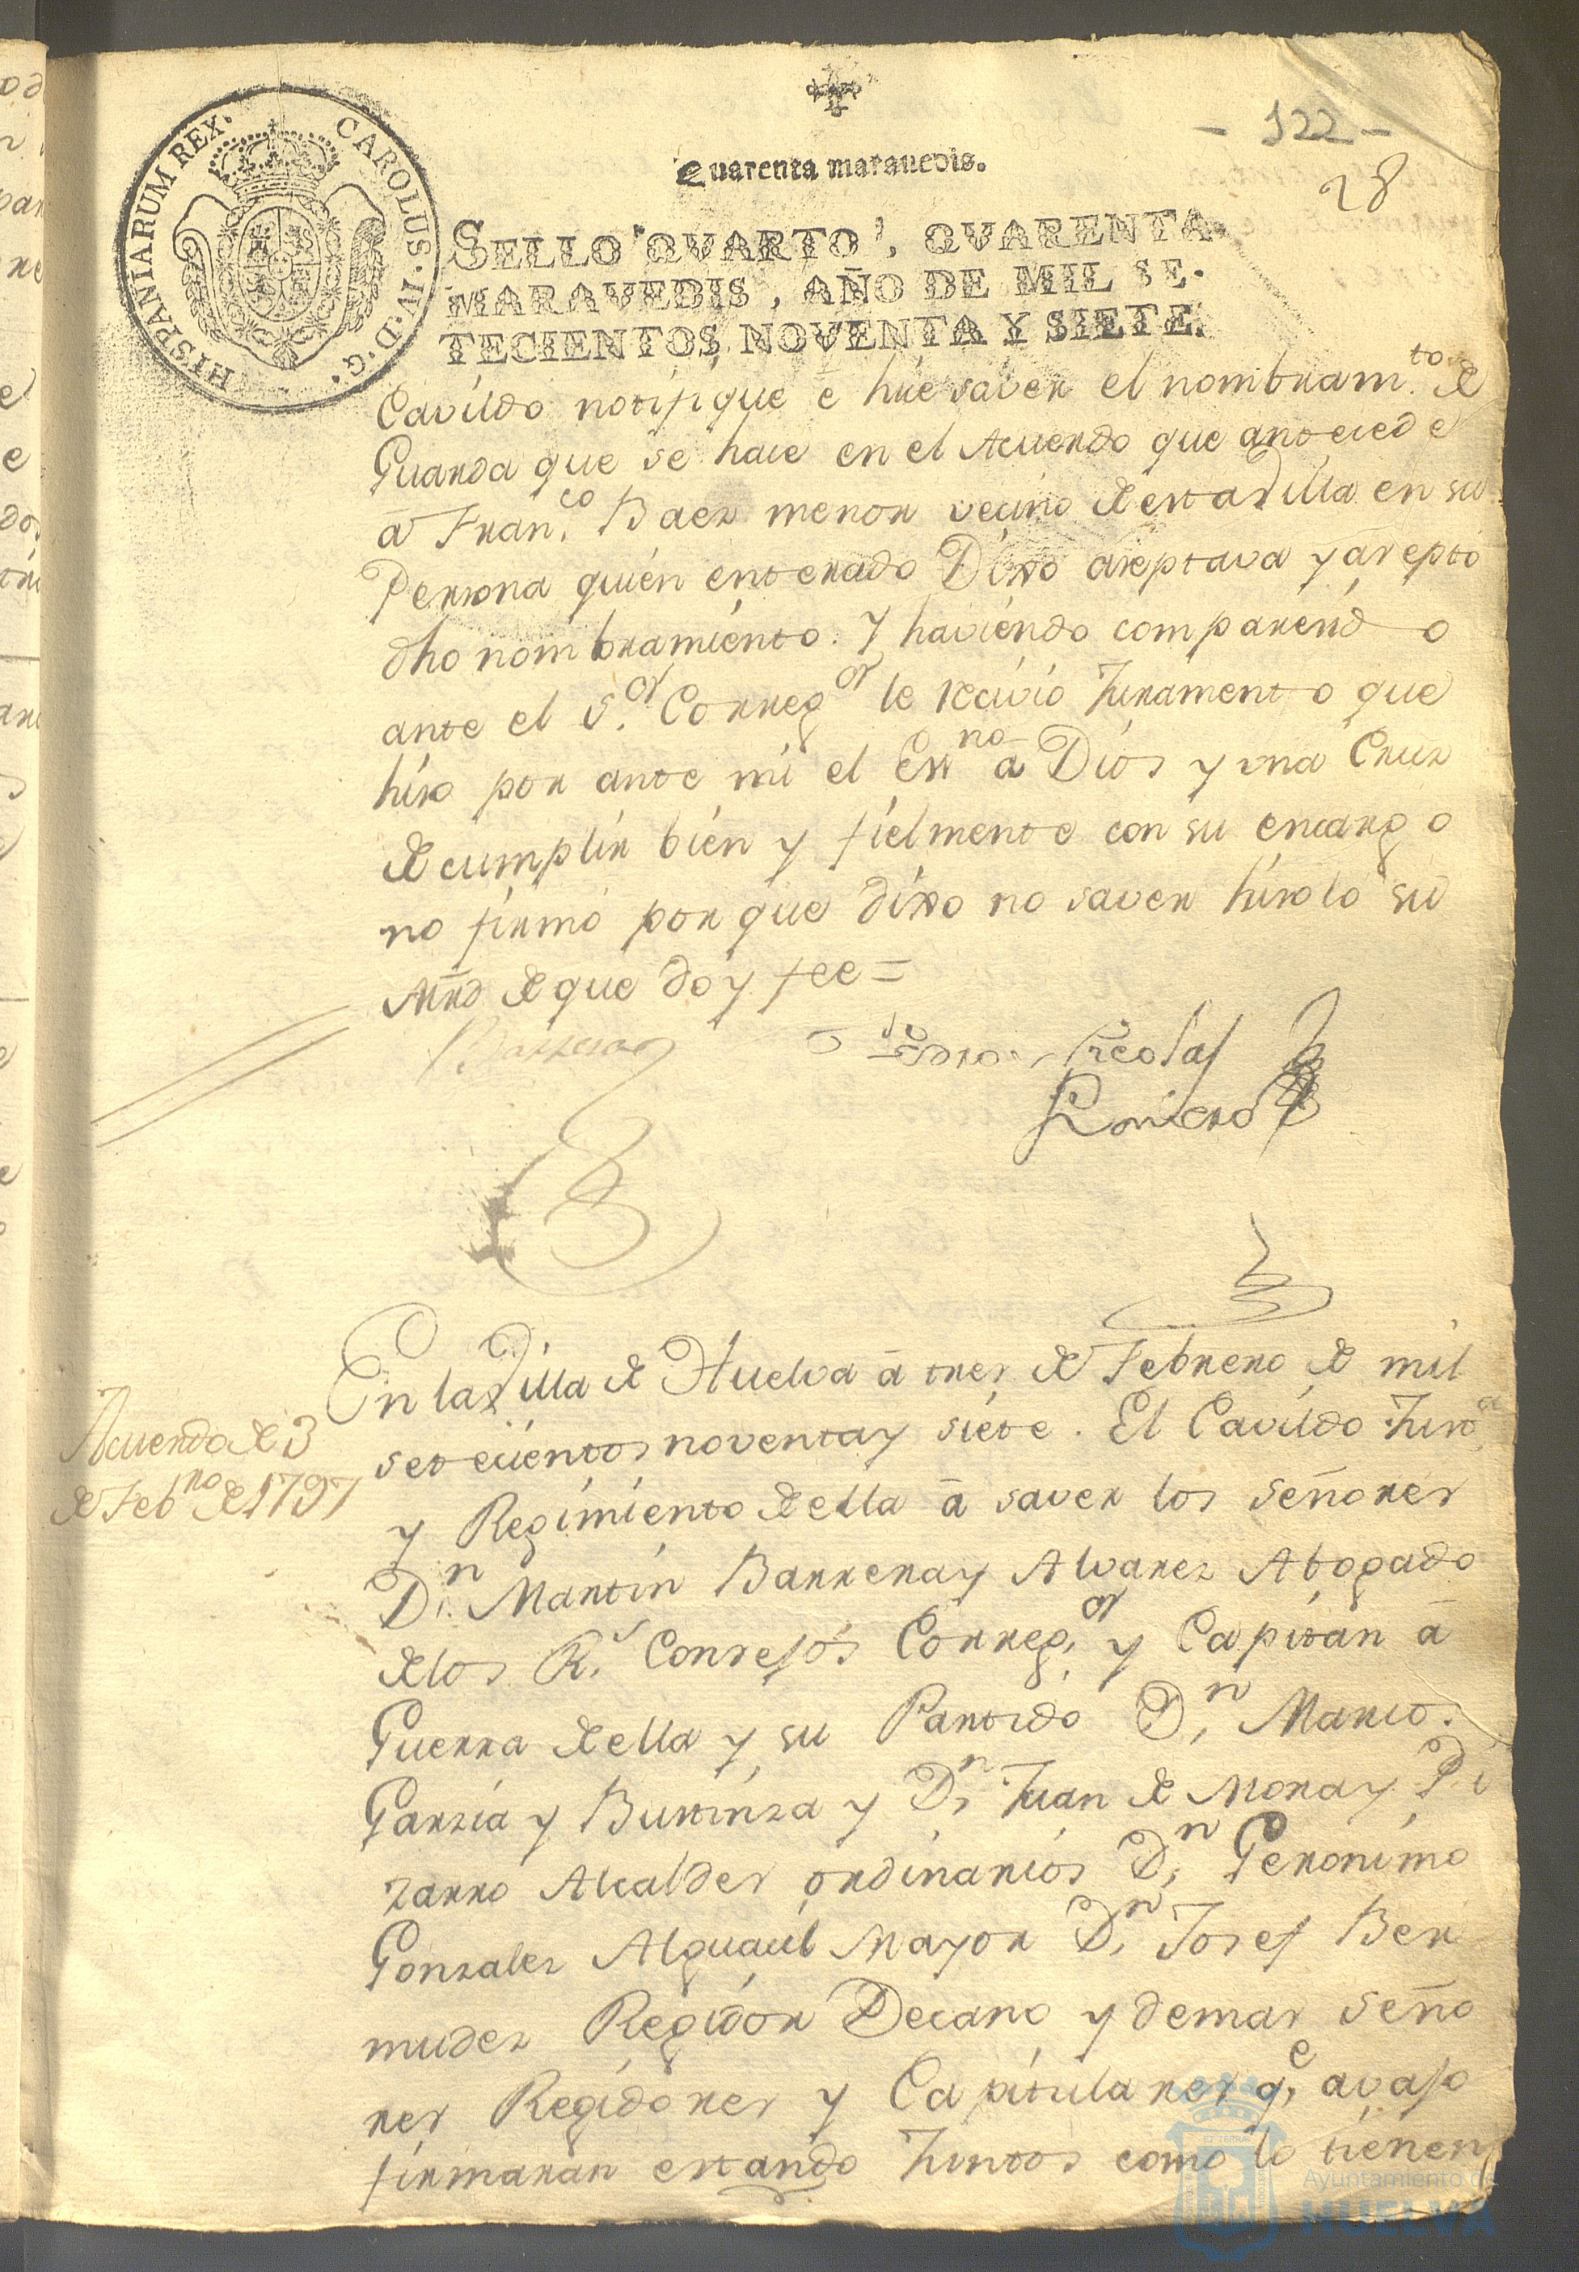 - 122 -
28
Quarenta maravedis.
HISPANIARUM REX. CAROLUS·IV·D·G·
SELLO QVARTO, QVARENTA
MARAVEDIS, AÑO DE MIL SE-
TECIENTOS NOVENTA Y SIETE.
Cavildo notifiqué é hice saver el nombram.to de
Guarda que se hace en el Acuerdo que antecede
â Fran.co Baez menor vecino de esta Villa en su
Persona quien enterado Dixo aceptava y aceptó
dho nombramiento. Y haviendo comparecido
ante el S.or Correg.or le recivió Juramento que
hizo por ante mi el Essno â Dios y una Cruz
de cumplir bien y fielmente con su encargo
no firmó porque dixo no saver hizolo su
Mrd de que doy fee =
Barrera
Pedro Nicolas
Romero
Acuerdo de 3
de Febro de 1797
En la Villa de Huelva â tres de Febrero de mil
setecientos noventa y siete. El Cavildo Justa
y Regimiento de ella â saver los señores
D.n Martin Barrera y Alvarez Abogado
de los R.s Consejos Correg.or y Capitan â
Guerra de ella y su Partido D.n Marcos
Garzia y Bustinza y D.n Juan de Mora y Pi
zarro Alcaldes ordinarios D.n Geronimo
Gonzalez Alguacil Mayor D.n Josef Ber
mudez Regidor Decano y demas seño
res Regidores y Capitulares q.e avajo
firmaran estando Juntos como lo tienen
Ayuntamiento de
HUELVA